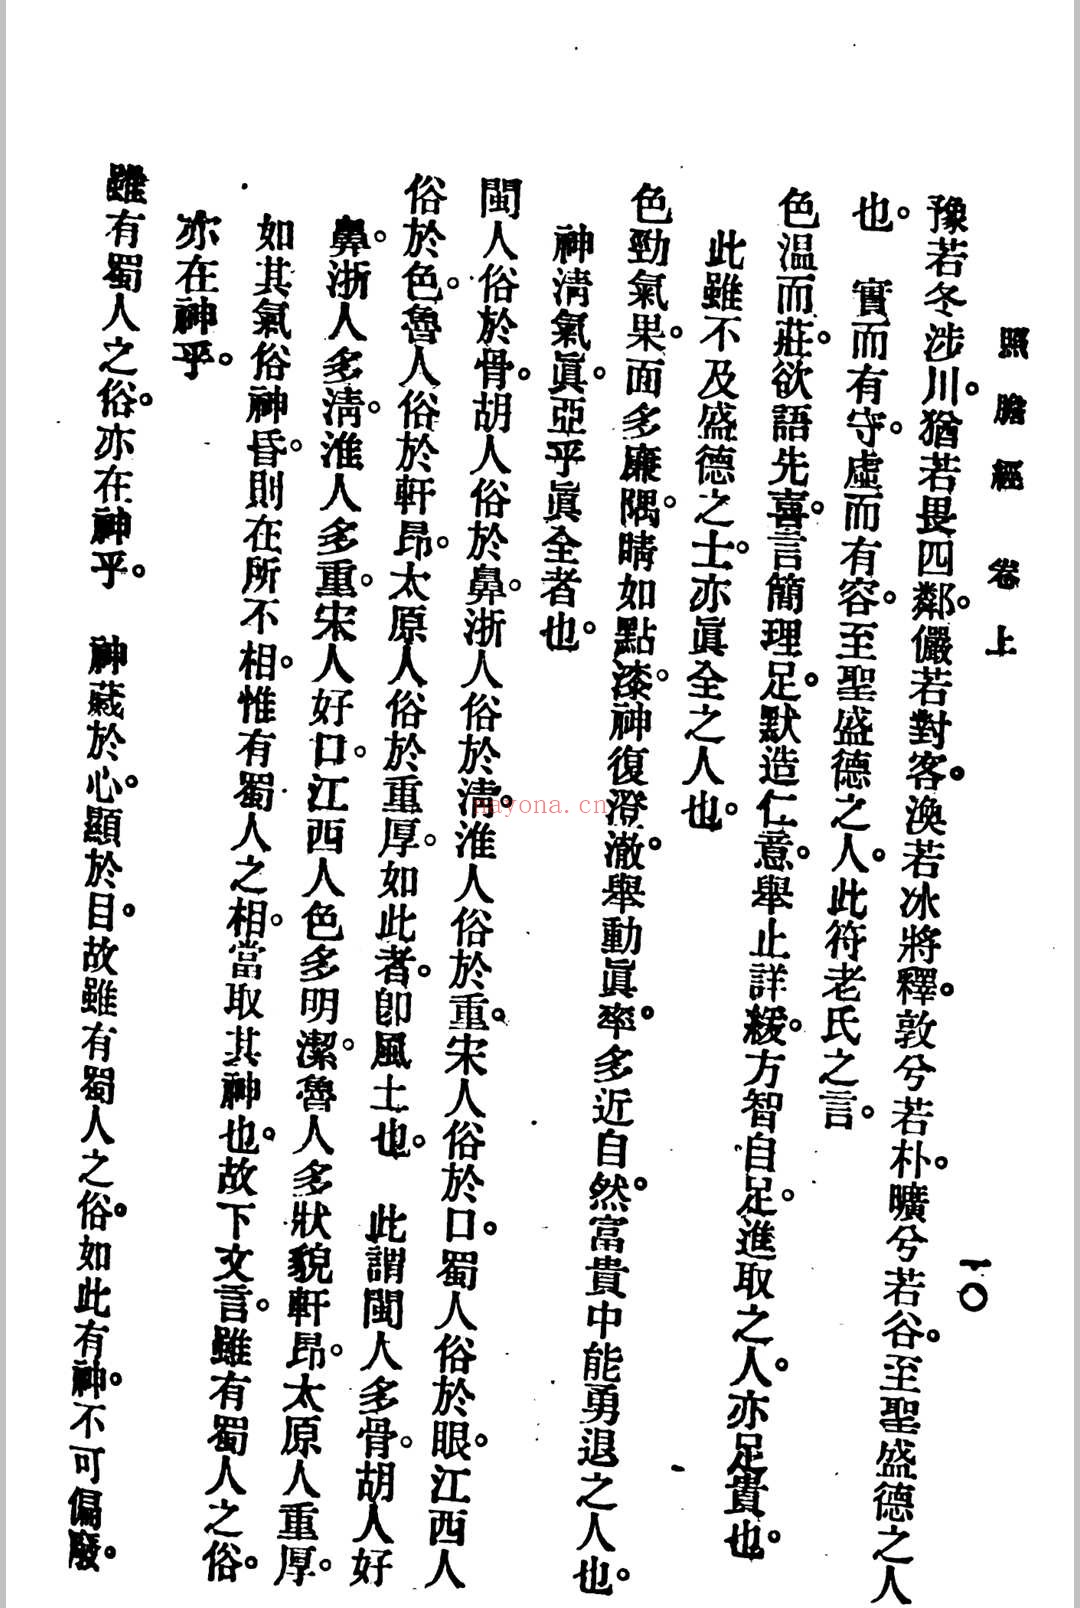 照膽經 卷上
一〇
豫若冬涉川。猶若畏四鄰。儼若對客。渙若冰將釋。敦兮若朴。曠兮若谷。至聖盛德之人
也。 實而有守。虛而有容。至聖盛德之人。此符老氏之言。
色温而莊。欲語先喜。言簡理足。默造仁意。舉止詳緩。方智自足。進取之人。亦足貴也。
此雖不及盛德之士。亦眞全之人也。
色勁氣果。面多廉隅。睛如點漆。神復澄澈。舉動眞率。多近自然。富貴中能勇退之人也。
神淸氣眞。亞乎眞全者也。
閩人俗於骨。胡人俗於鼻。浙人俗於清。淮人俗於重。宋人俗於口。蜀人俗於眼。江西人
俗於色。魯人俗於軒昂。太原人俗於重厚。如此者。卽風土也。 此謂閩人多骨。胡人好
鼻。浙人多淸。淮人多重。宋人好口。江西人色多明潔。魯人多狀貌軒昂。太原人重厚。
如其氣俗神昏。則在所不相。惟有蜀人之相。當取其神也。故下文言。雖有蜀人之俗。
亦在神乎。
雖有蜀人之俗。亦在神乎。 神藏於心。顯於目。故雖有蜀人之俗。如此有神。不可偏廢。
nayona.cn